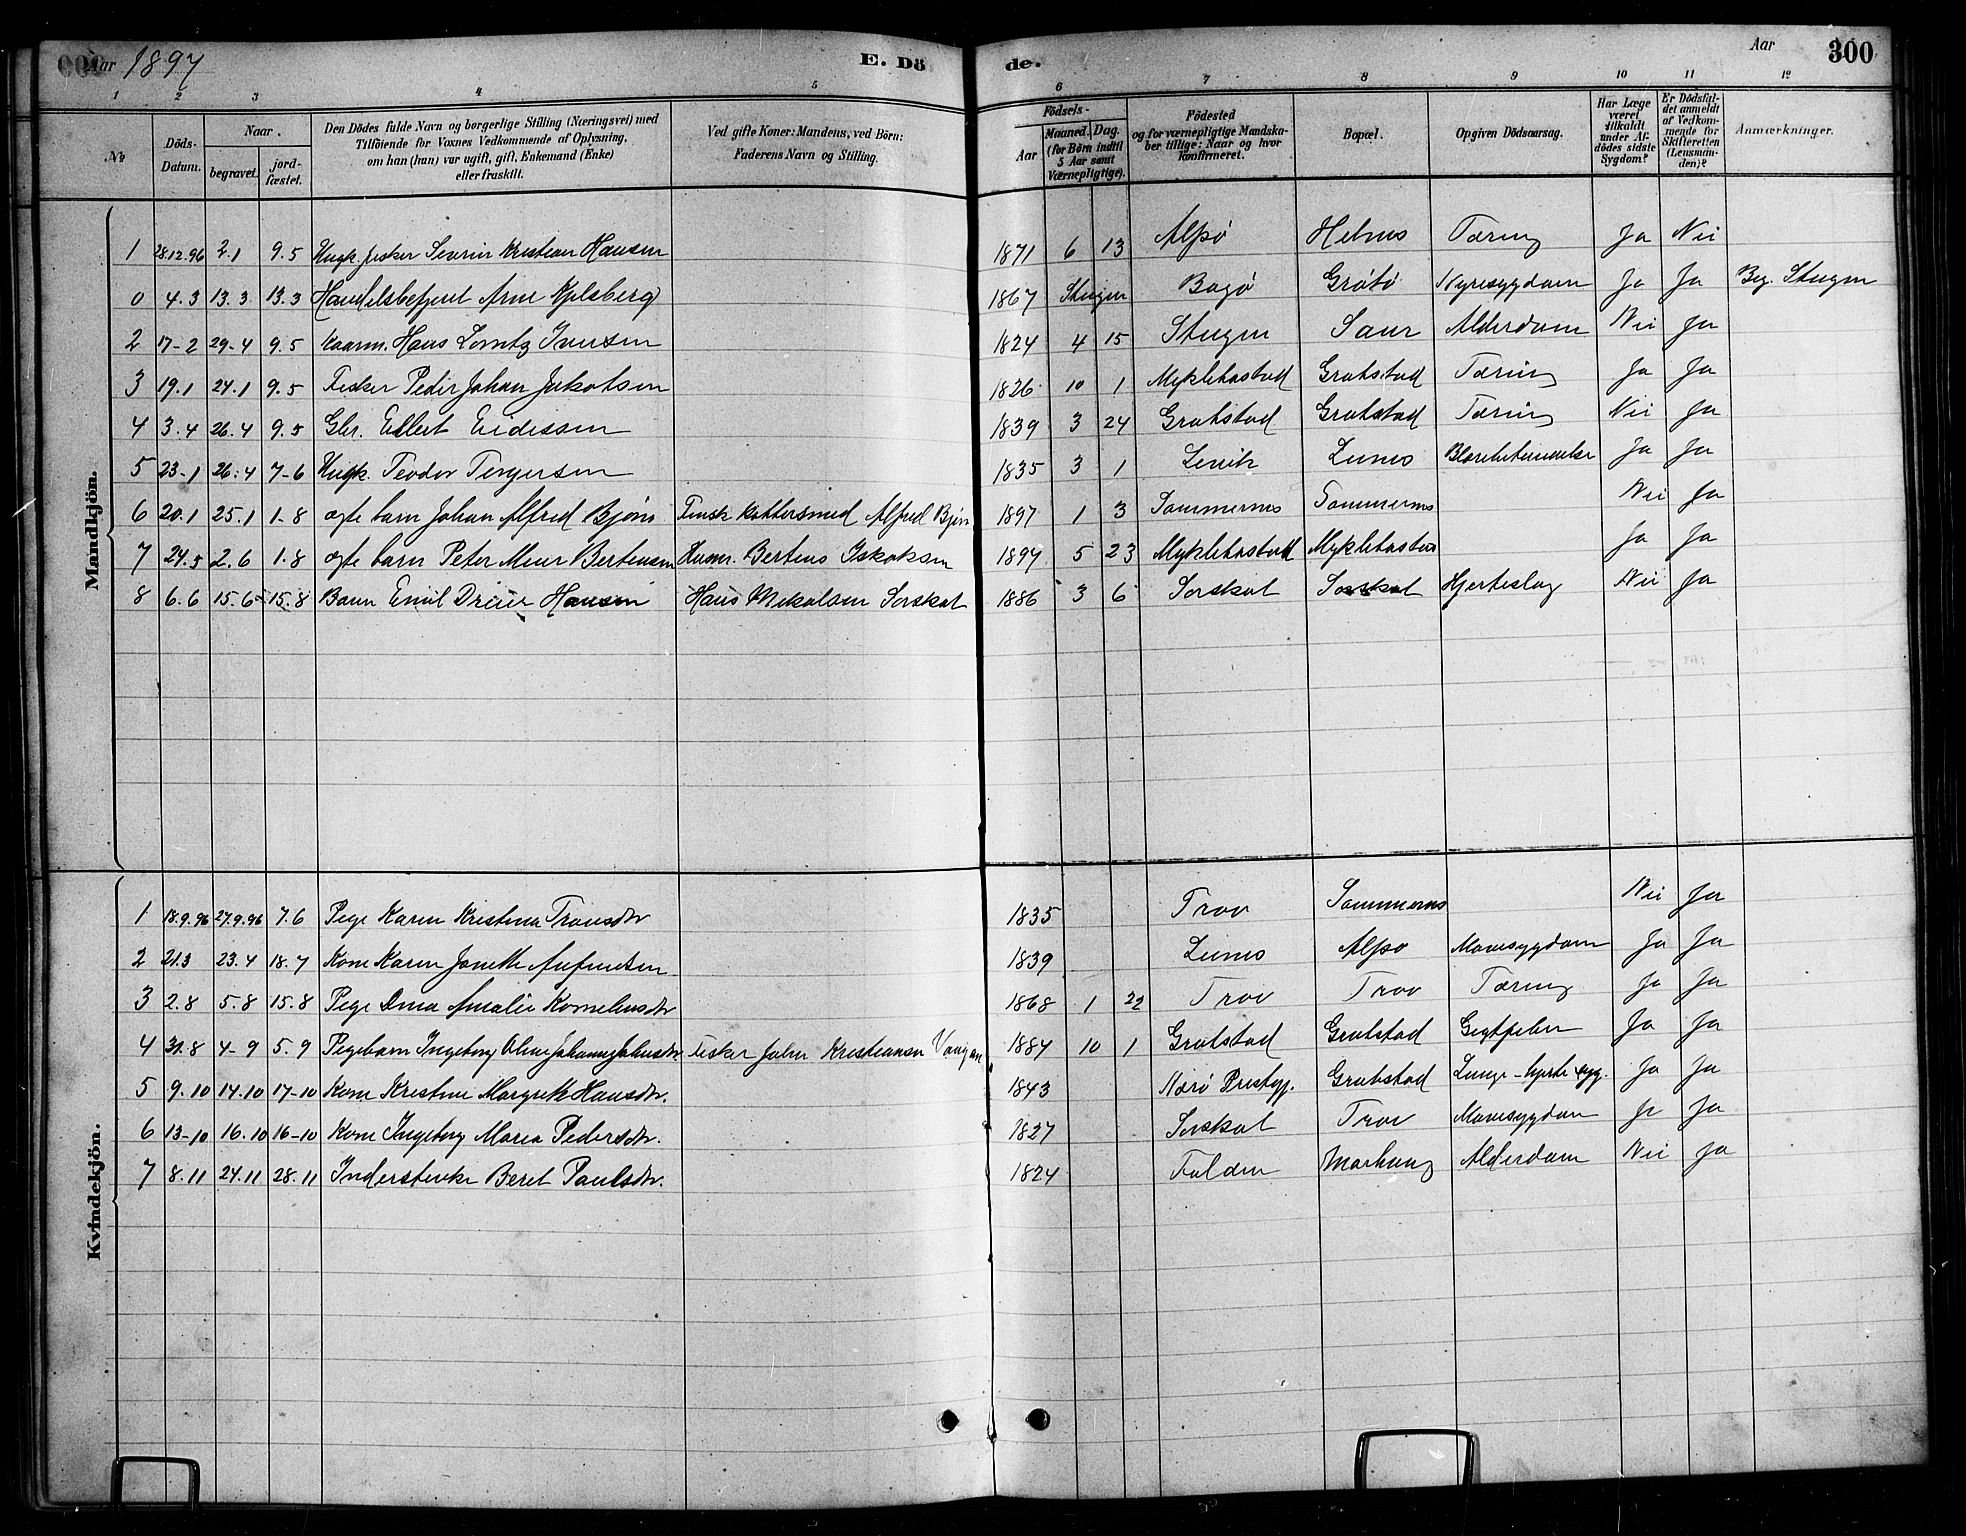 Aar 1897 E. Dö de. Aar 300
1 2 3 4 5 6 7 8 9 10 11 12
No
Döds-Datum.
Naar.
begravet. jord-fæstet.
Den Dödes fulde Navn og borgerlige Stilling (Næringsvei) med
Tilföiende for Voxnes Vedkommende af Oplysning,
om han (hun) var ugift, gift, Enkemand (Enke)
eller fraskilt.
Ved gifte Koner: Mandens, ved Börn:
Faderens Navn og Stilling.
Födsels-
Aar Maaned. Dag.
(for Börn indtil
5 Aar samt
Værnepligtige).
Födested
og for værnepligtige Mandska-
ber tillige: Naar og hvor
konfirmeret.
Bopæl.
Opgiven Dödsaarsag.
Har Læge
været
tilkaldt
under Af-
dödes sidste
Sygdom?
Er Dödsfal-
det anmeldt
af Vedkom-
mende for
Skifteretten
(Lensman-
den)?
Anmærkninger.
Mandkjön.
1 28.12.96 2.1 9.5 Ungk. fisker Severin Kristian Hansen 1871 6 13 Alsø Helnes Tæring Ja Nei
0 4.3 13.3 13.3 Handelsbetjent Arne Kjelsberg 1867 Steigen Bogø Grøtø Nyresygdom Ja Ja Beg. Steigen
2 17-2 29-4 9.5 Kaarm. Hans Lorntz Iversen 1824 4 15 Steigen Saur Alderdom Nei Ja
3 19.1 24.1 9.5 Fisker Peder Johan Jakobsen 1826 10 1 Myklebostad Grobstad Tæring Ja Ja
4 3.4 26.4 9.5 Gbr. Ellert Endresen 1839 3 24 Grobstad Grobstad Tæring Nei Ja
5 23-1 26.4 7-6 Ungk. Teodor Torgersen 1835 3 1 Lenvik Lunes Blærebetændelse Ja Ja
6 20.1 25.1 1-8 ægte barn Johan Alfred Bjørn Finsk Kobbersmed Alfred Bjørn 1897 1 3 Sommernes Sommernes Nei Ja
7 24.5 2.6 1-8 ægte barn Peter Meier Berteusen Husm. Berteus Isaksen 1897 5 23 Myklebostad Myklebostad Ja Ja
8 6.6 15.6 15.8 Barn Emil Dreier Hansen Hans Nikolsen Sørskot 1886 3 6 Sørskot Sørskot Hjerteslag Nei Ja
Kvindekjön.
1 18.9.96 27.9.96 7.6 Pige Karen Kristina Tronsdtr 1835 Trov Sommernes Nei Ja
2 21.3 23.4 18.7 Kone Karen Janette Anfinsen 1839 Lunes Alsø Mavesygdom Ja Ja
3 2.8 5.8 15.8 Pige Dina Amalie Korneliusdtr 1868 1 22 Trov Trov Tæring Ja Ja
4 31.8 4-9 5.9 Pigebarn Ingeborg Oline Johanna Johnsdtr Fisker John Kristiansen 1884 10 1 Grobstad Grobstad Gigtfeber Ja Ja
5 9.10 14.10 17-10 Kone Kristine Margrethe Hansdtr. 1843 Nærø Prestgj. Grobstad Lunge-hjerte syg. Ja Ja
6 13-10 16.10 16-10 Kone Ingeborg Maria Pedersdtr. 1827 Sørskot Trov Mavesygdom Ja Ja
7 8.11 24.11 28.11 Inderstenke Beret Paulsdtr. 1824 Folden Morhaug Alderdom Nei Ja